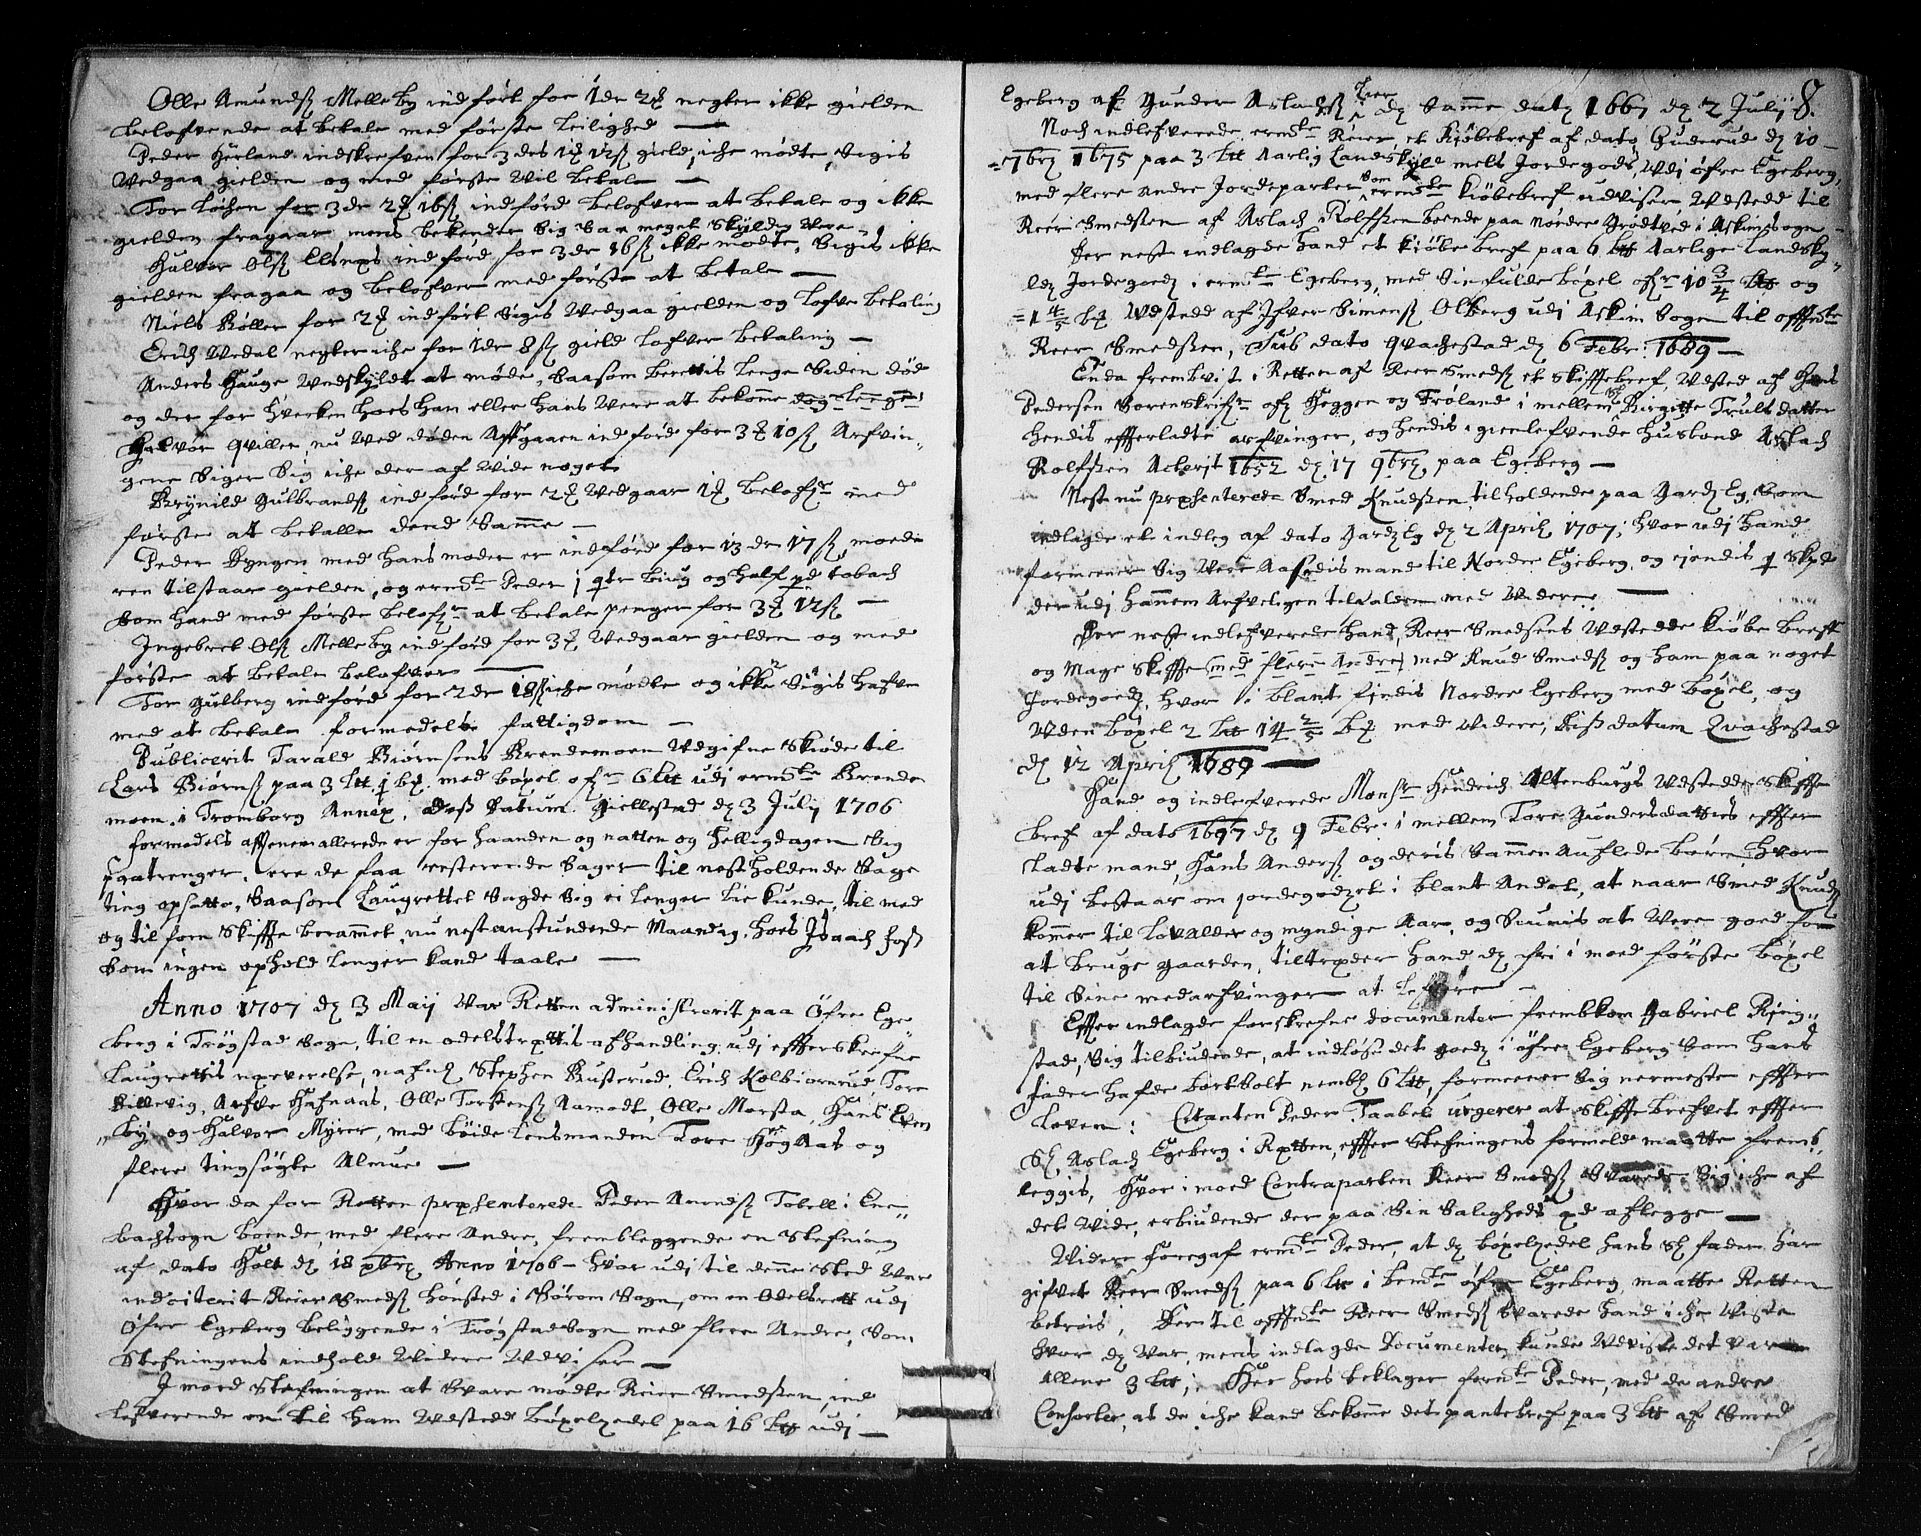 Olle Amundsß Melleby indført for 1 dr 2 neגter ikke gielden
belofvende at betale med første leilighed —
Peder Hærland indskrefven for 3 drs gield, iche mødte, Sigis
Vedgaa gielden og med første Vil betale —
Tor Løchen for 3 dr 16ß indførd belofver at betale og ikke
gielden fragaar mens bekender Sig Saa meget Skyldig Vere
Halvor Olsß indførd for 3 dr 16ß ikke mødte, Sigis ikke
gielden fragaa og belofver med første at betale —
Niels Bøller for indført Sigis Vedgaa gielden og lofve betaling
Erich Vedal negter iche for 1 dr 8ß gield lofver betaling —
Anders Hauge Undskyldt at møde, Saasom berettis lenge Siden død
og der for hverken hoes ham eller hans Vere at bekomme
Halvor qviller, nu Ved døden Affgaaen indførd for 10ß Arfvin-
gene Siger Sig iche der af Vide noget
Brynild Gulbrandsß indførd for Vedgaar belofver med
første at betalle dend Samme —
Peder Ryngen med hans moder er indførd for 13 dr 17ß, moede
ren tilstaar gielden, og ermte Peder 1 qtr biug og half pd tobach
Som hand med første belofver at betale penger for 12ß —
Ingebret Olsß Melleby indførd for Vedgaar gielden og med
første at betale belofver —
Tor Gulberg indførd for 2 dr 18ß iche mødte og ikke Sigis hafve
med at betale formedelst fattigdom —
Publicerit Tarald Biørnsens Brendemoen Udgifne Skiøde til
Lars Biørnsß paa 3 med bøxel ofver 6 udj ermte Brende
moen i Tromborg Annex, Dess Datum Giellestad d 3 Julij 1706
formedels afftenen allerede er for haanden og natten og helligdagen Sig
paatrenger, ere de faa resterende Sager til nestholdende Sage
ting opsatte, Saasom Laugrettet Sagde Sig ei lenger bie kunde, til med
og til forn Skiffte berammet nu nestanstundende Maandag, hoes Isaach
Som ingen ophold lenger kand taale —
Anno 1707 d 3 Maij Var Retten administrerit paa Øfre Ege
berg i Trøgstad Sogn, til en odelstrettis afhandling udj effterskrefne
Laugrettis nærverelse, nafnl Stephen Rusterud, Erich Kolbiørnrud Tore
Billevig, Arfve Hafnaas, Olle Torstensß Aamodt, Olle Morsta, Hans Even
by og Halvor Myrer, med bøide lensmanden Tore Høgaas og
flere tingsøgte Almue —
Hvor da for Retten præsenterede Peder Amundsß Tobell i Ene
bachsogn boende, med flere Andre, fremleggende en Stefning
af dato Holt d 18 Anno 1706 – hvor udj til denne Sted Var
indciterit Reier Smedsß hønsted i Sørom Sogn, om en Odelsrett udj
Øfre Egeberg beliggende i Trøgstadsogn med flere Andre, Som
Stefningens indhold Videre Udviser —
Imod Stefningen at Svare mødte Reier Smedssen, ind
lefverende en til ham Udstedde bøxelzedel paa 16 udj —
Egeberg af Gunder Aslachsß d Samme dato 1667 d 2 Julij 8.
Noch indlefverede ermte Reier et kiøbebref af dato Guderud d 10
7br 1675 paa 3 Aarlig Landskyld mels Jordegods, Udj øfre Egeberg,
med flere andre Jordeparter Som ermte kiøbebref udviser Udstedt til
Reer Smedssen af Aslach Rolfssen boende paa nordre Grødtved i Askimsogn —
Der nest indlagde hand et kiøbe bref paa 6 Aarlige Landsky-
ld Jordegoedß i ermte Egeberg, med Sin fulde bøxel ofver 10 3/4 og
1 4/5 Udstedd af Ifver Simensß Olberg udj Askim Sogn til offtte
Reer Smedssen, Sub dato qvachestad d 6 Febr: 1689 —
Enda frembvist i Retten af Reer Smedsß et Skifftebref, Udsted af Hans
Pedersen Sorenskrifver ofver Heggen og Frøland i mellem Birgitte Truls datter
hendis effterladte arfvinger, og hendis igienlefvende husbond Aslach
Rolfssen Acterit 1652 d 17 9br, paa Egeberg —
Nest nu præsenterede Smed Knudssen tilholdende paa Gardz Eg, Som
indlagde et indleg af dato Gardz Eg d 2 Aprill 1707, hvor udj hand
formeener Sig Vere Aasedis mand til Nordre Egeberg, og
der udj hannem Arfveligen tilfalden med Videre. —
Der nest indlefverede hand, Reer Smedsens Udstedde kiøbe breff
og Mage skiffte med flere Andre, med Knud Smedsß og ham paa noget
Jordegoedß, hvor i blant findis Nordre Egeberg med bøxel, og
Uden bøxel 2 14 2/5 med Videre, Diss datum Qvachestad
d 12 Aprill 1689 —
Hand og indlefverede Monsr Hendrich Altenburgs Udstedde Skiffte
bref af dato 1697 d 9 Febr: i mellem Tore Gundersdatters effter
ladte mand, Hans Andersß og deris Sammen Auflede børn, hvor
udj bestaar om jordegodzet i blant Andet, at naar Smed Knudsß
kommer til Lovalder og myndige Aar, og Siunis at Vere goed for
at bruge gaarden, tiltræder hand d fri imod første bøxel
til Sine medarfvinger at lefvere —
Effter indlagde forskrefne documenter frembkom Gabriel Ring-
stad, Sig tilbiudende, at indløse det goedß i øfre Egeberg Som hans
fader hafde bortsolt nembl 6, formeener Sig nermeste effter
Loven: Citanten Peder Taabel urgerer at Skifftebrefvet effter
Sl Aslach Egeberg i Retten, effter Stefningens formeld maatte fremb
leggis, Hvor imod Contraparten Reer Smedsß Svarede Sig iche af
det Vide, erbiudende der paa Sin Saligheds ed aflegge —
Videre foregaf ermte Peder, at d bøxelzedel hans Sl fader har
gifvet Reer Smedsß paa 6 i bemte øfre Egeberg, maatte Retten
betrois, Der til offtte Reer Smedsß Svarede hand iche Viste
hvor d Var, mens indlagde Documenter kunde Udvise det Var
Allene 3; Her hoes beklager formte Peder, med de andre
Consorter, at de iche kand bekomme det pantebref paa 3 af Smed